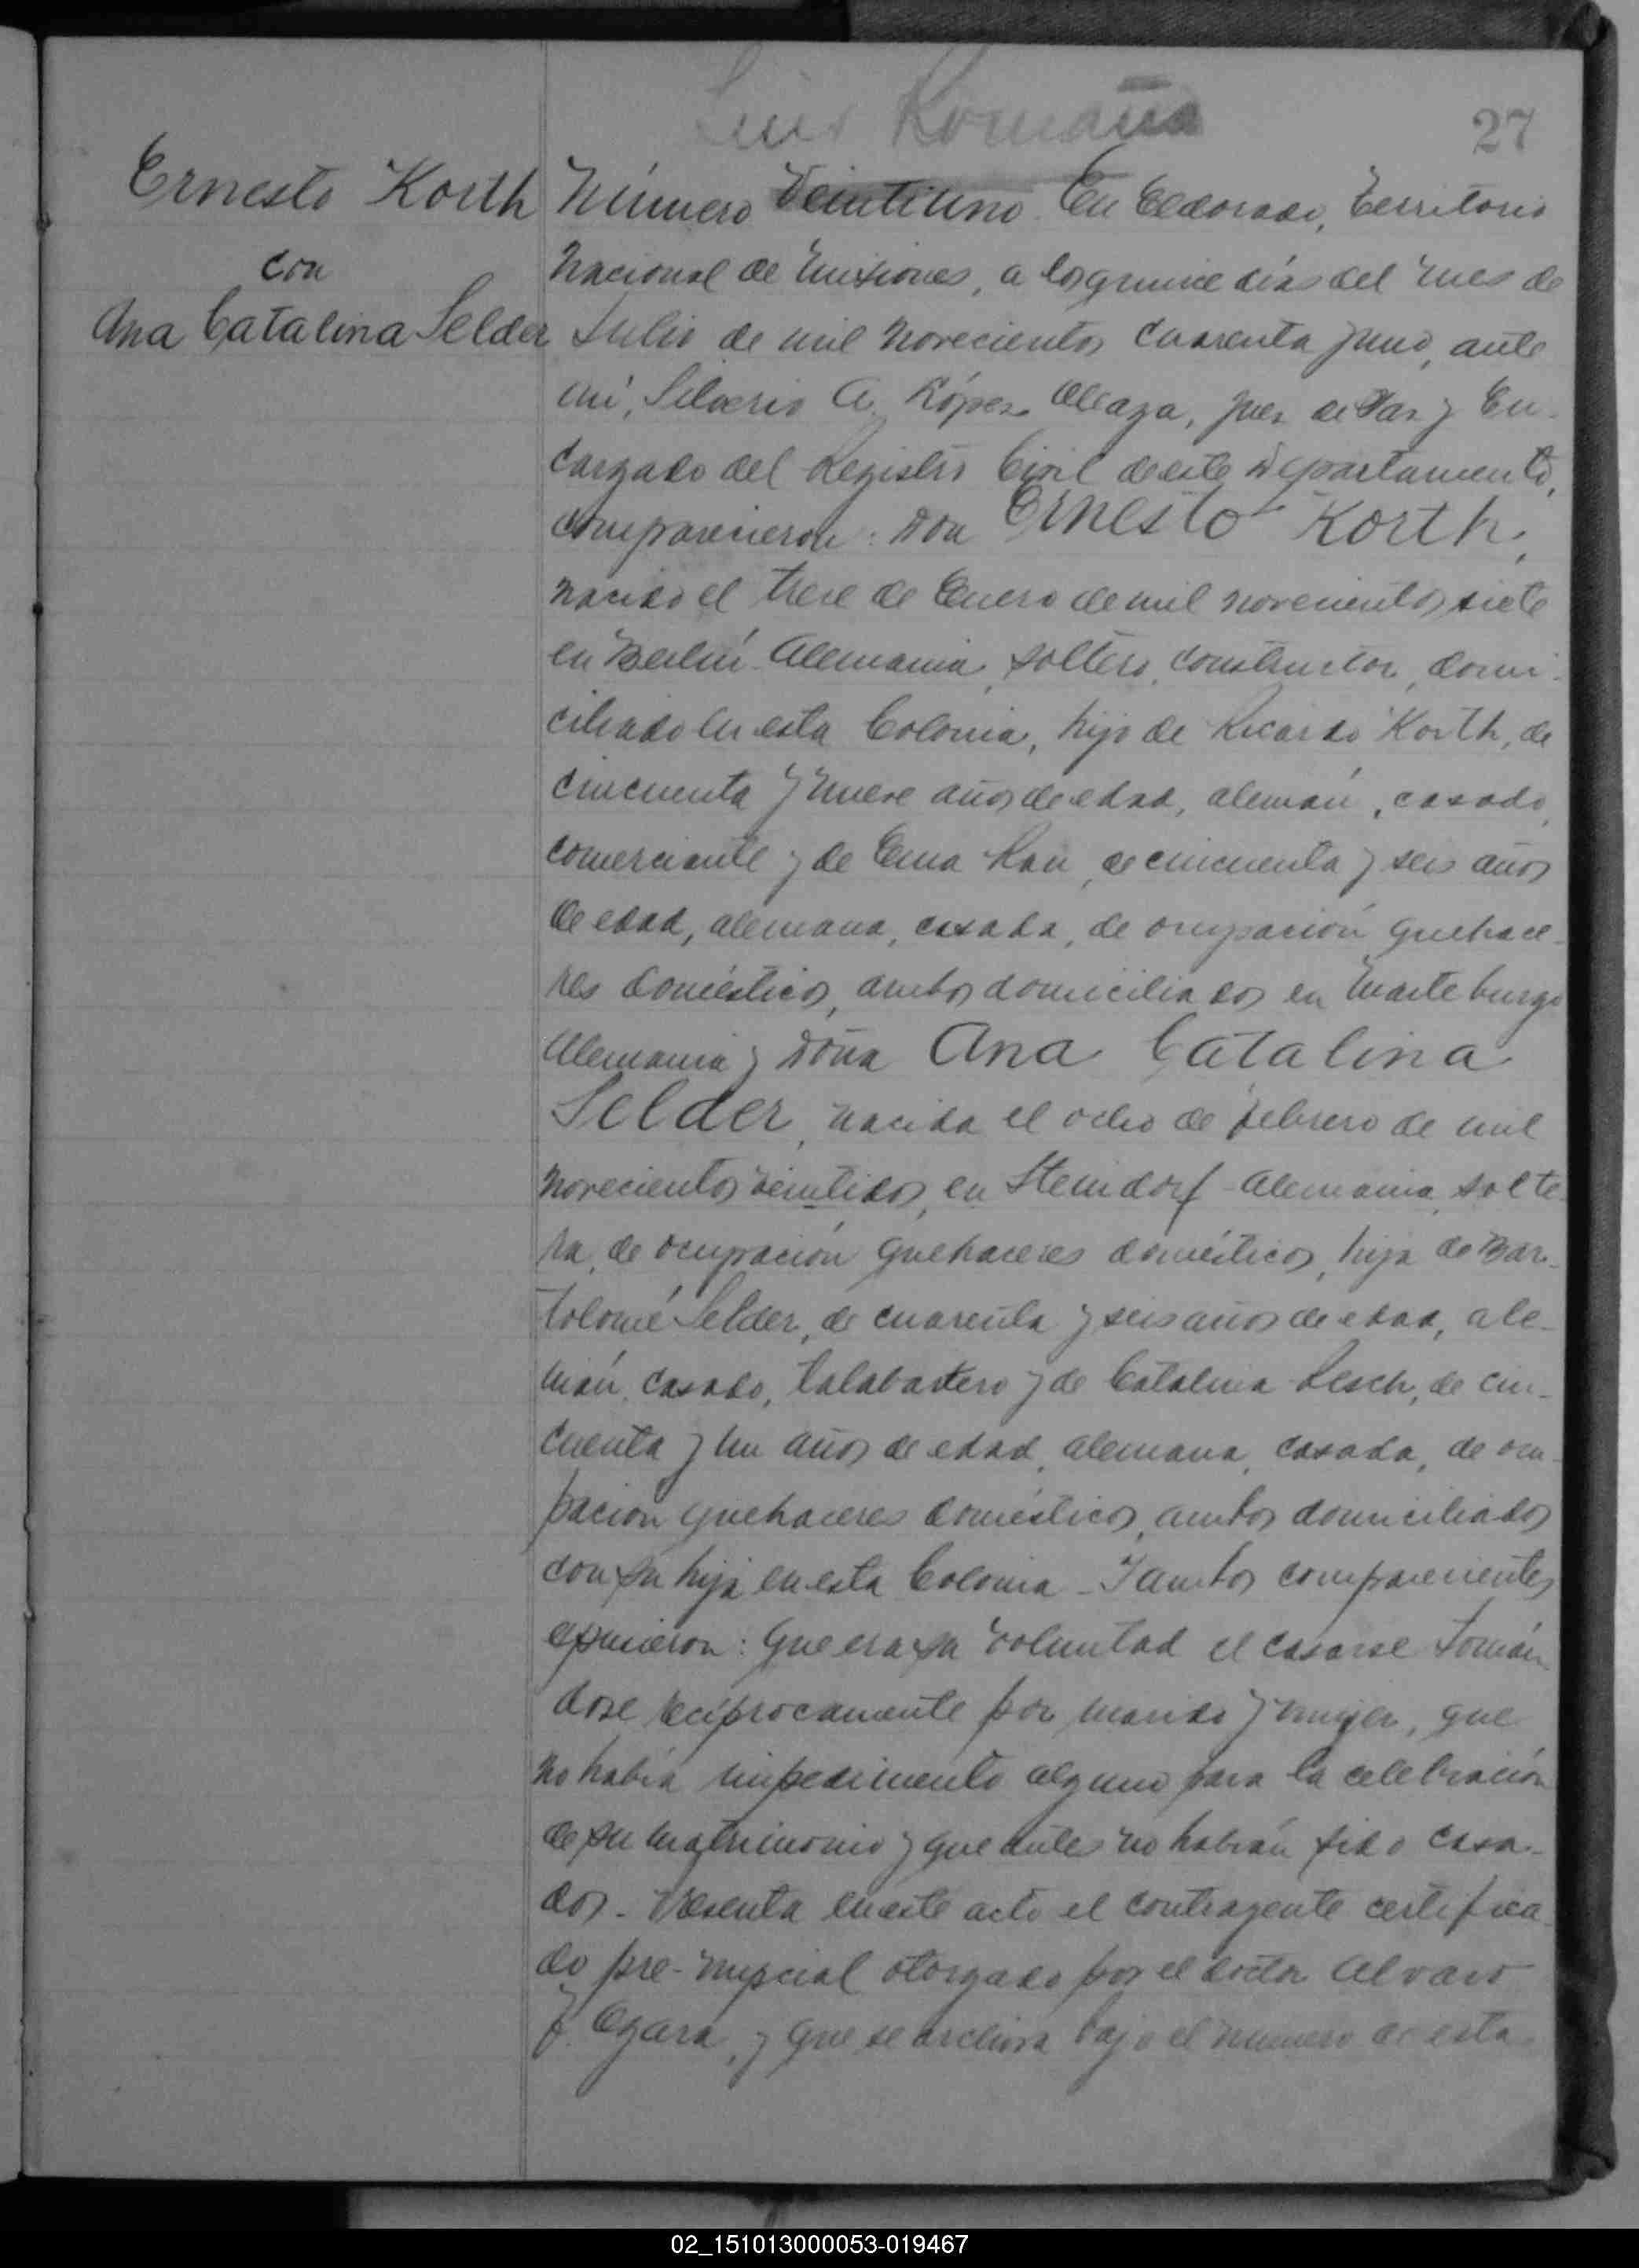 Luis Romaña
27
Ernesto Korth
con
Ana Catalina Selder
Número Veintiuno. En Eldorado, Territorio
Nacional de Misiones, a los quince días del mes de
Julio de mil novecientos cuarenta y uno, ante
mí, Silverio A. López Aleaga, Juez de Paz y En-
cargado del Registro Civil de este Departamento,
comparecieron: Don Ernesto Korth,
nacido el trece de Enero de mil novecientos siete
en Berlín-Alemania, soltero, constructor, domi-
ciliado en esta Colonia, hijo de Ricardo Korth, de
cincuenta y nueve años de edad, alemán, casado,
comerciante y de Ema Rau, de cincuenta y seis años
de edad, alemana, casada, de ocupación quehace-
res domésticos, ambos domiciliados en
Alemania y Doña Ana Catalina
Selder, nacida el ocho de febrero de mil
novecientos veintidos, en Steindorf-Alemania, solte-
ra, de ocupación quehaceres domésticos, hija de Bar-
tolomé Selder, de cuarenta y seis años de edad, ale-
mán, casado, talabartero y de Catalina Resch, de cin-
cuenta y un años de edad, alemana, casada, de ocu-
pación quehaceres domésticos, ambos domiciliados
con su hija en esta Colonia - Y ambos comparecientes
expusieron: que era su voluntad el casarse tomán
dose recíprocamente por marido y mujer, que
no había impedimento alguno para la celebración
de su matrimonio y que antes no habían sido casa-
dos. Presenta en este acto el contrayente certifica
do pre-nupcial otorgado por el doctor Alvaro
J. Ogara, y que se archiva bajo el número de esta
02_151013000053-019467